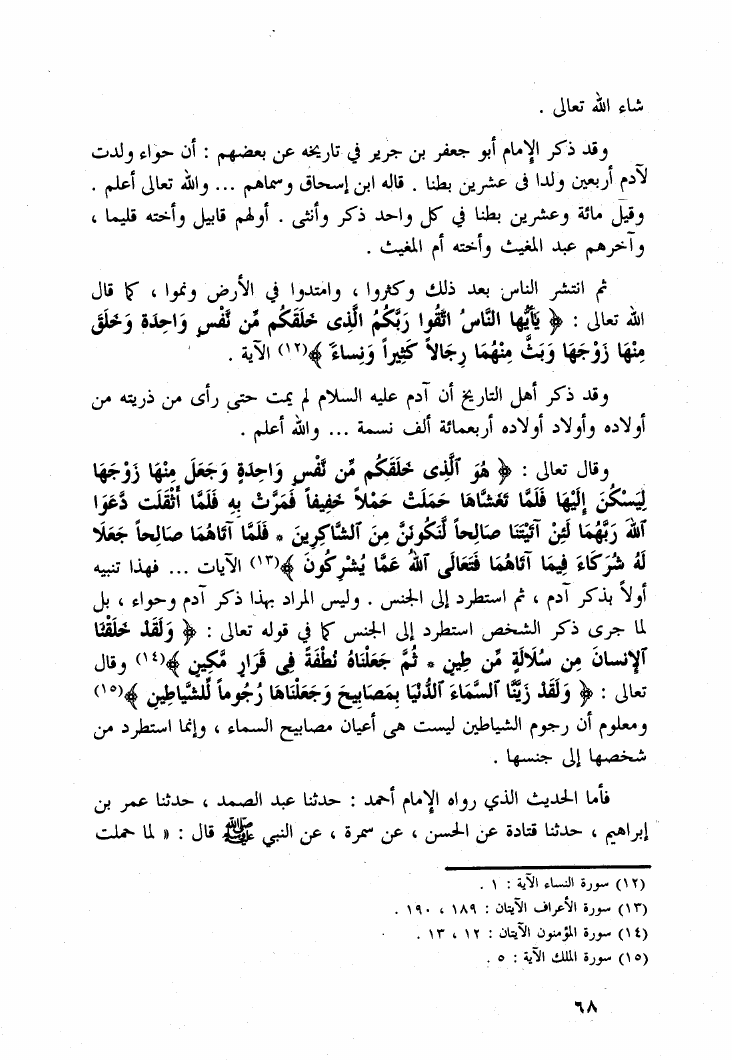 شاء الله تعالى .
وقد ذكر الإمام أبو جعفر بن جرير في تاريخه عن بعضهم : أن حواء ولدت
لآدم أربعين ولدا فى عشرين بطنا . قاله ابن إسحاق وسماهم ... والله تعالى أعلم .
وقيل مائة وعشرين بطنا في كل واحد ذكر وأنثى . أولهم قابيل وأخته قليما ،
وآخرهم عبد المغيث وأخته أم المغيث .
ثم انتشر الناس بعد ذلك وكثروا ، وامتدوا في الأرض ونموا ، كما قال
الله تعالى : ﴿ يَٰأَيُّها النَّاسُ اتَّقُوا رَبَّكُمُ الَّذِى خَلَقَكُم مِّن نَّفْسٍ وَاحِدَة وَخَلَقَ
مِنْهَا زَوْجَهَا وَبَثَّ مِنْهُمَا رِجَالاً كَثِيراً وَنِساءً ﴾(١٢) الآية .
وقد ذكر أهل التاريخ أن آدم عليه السلام لم يمت حتى رأى من ذريته من
أولاده وأولاد أولاده أربعمائة ألف نسمة ... والله أعلم .
وقال تعالى : ﴿ هُوَ ٱلَّذِى خَلَقَكُم مِّن نَّفْسٍ وَاحِدَةٍ وَجَعَلَ مِنْهَا زَوْجَهَا
لِيَسْكُنَ إِلَيْهَا فَلَمَّا تَغَشَّاهَا حَمَلَتْ حَمْلاً خَفِيفاً فَمَرَّتْ بِهِ فَلَمَّا أَثْقَلَت دَّعَوَا
ٱللهَ رَبَّهُمَا لَئِنْ آتَيْتَنَا صَالِحاً لَّنَكُونَنَّ مِنَ ٱلشَّاكِرِينَ * فَلَمَّا آتَاهُمَا صَالِحاً جَعَلَا
لَهُ شُرَكَاءَ فِيمَا آتَاهُمَا فَتَعَالَى ٱللهُ عَمَّا يُشْرِكُونَ ﴾(١٣) الآيات ... فهذا تنبيه
أولاً بذكر آدم ، ثم استطرد إلى الجنس . وليس المراد بهذا ذكر آدم وحواء ، بل
لما جرى ذكر الشخص استطرد إلى الجنس كما في قوله تعالى : ﴿ وَلَقَدْ خَلَقْنَا
ٱلإِنسانَ مِن سُلَالَةٍ مِّن طِينٍ * ثُمَّ جَعَلْنَاهُ نُطْفَةً فِى قَرَارٍ مَّكِينٍ ﴾(١٤) وقال
تعالى : ﴿ وَلَقَدْ زَيَّنَّا ٱلسَّمَاءَ ٱلدُّنْيَا بِمَصَابِيحَ وَجَعَلْنَاهَا رُجُوماً لِّلشَّياطِينِ ﴾(١٥)
ومعلوم أن رجوم الشياطين ليست هى أعيان مصابيح السماء ، وإنما استطرد من
شخصها إلى جنسها .
فأما الحديث الذي رواه الإمام أحمد : حدثنا عبد الصمد ، حدثنا عمر بن
إبراهيم ، حدثنا قتادة عن الحسن ، عن سمرة ، عن النبي ﷺ قال : « لما حملت
(١٢) سورة النساء الآية : ١ .
(١٣) سورة الأعراف الآيتان : ١٨٩ ، ١٩٠ .
(١٤) سورة المؤمنون الآيتان : ١٢ ، ١٣ .
(١٥) سورة الملك الآية : ٥ .
٦٨